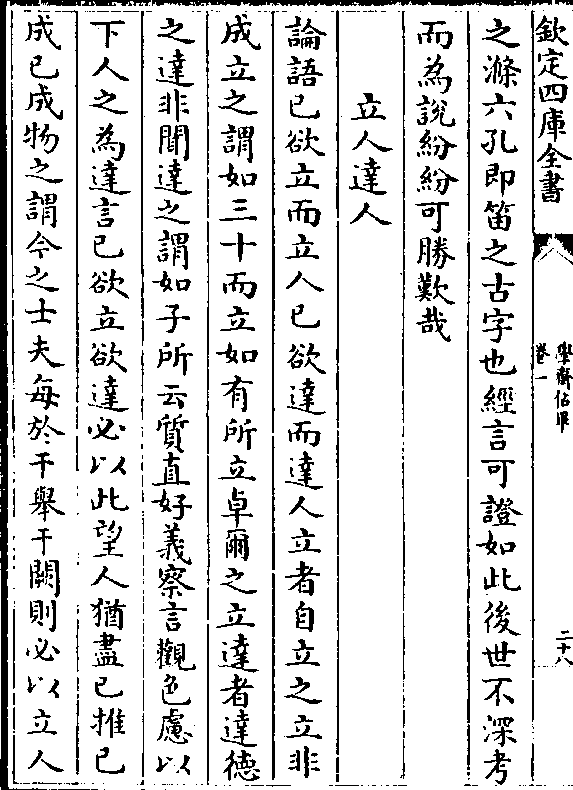 欽定四庫全書
學齋佔畢
卷一
二十八
之滌六孔即笛之古字也經言可證如此後世不深考
而為說紛紛可勝歎哉
立人達人
論語已欲立而立人已欲達而達人立者自立之立非
成立之謂如三十而立如有所立卓爾之立達者達德
之達非聞達之謂如子所云質直好義察言觀色慮以
下人之為達言已欲立欲達必以此望人猶盡已推已
成已成物之謂今之士夫每於干舉干闕則必以立人